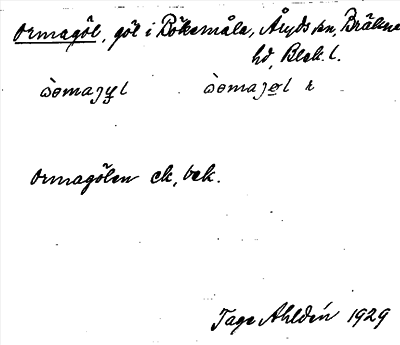 Ormagöl, göl i Bökemåla, Åryds sn, Bräkne
hd, Blek. l.
Ormagölen ek, bek.
Tage Ahldén 1929